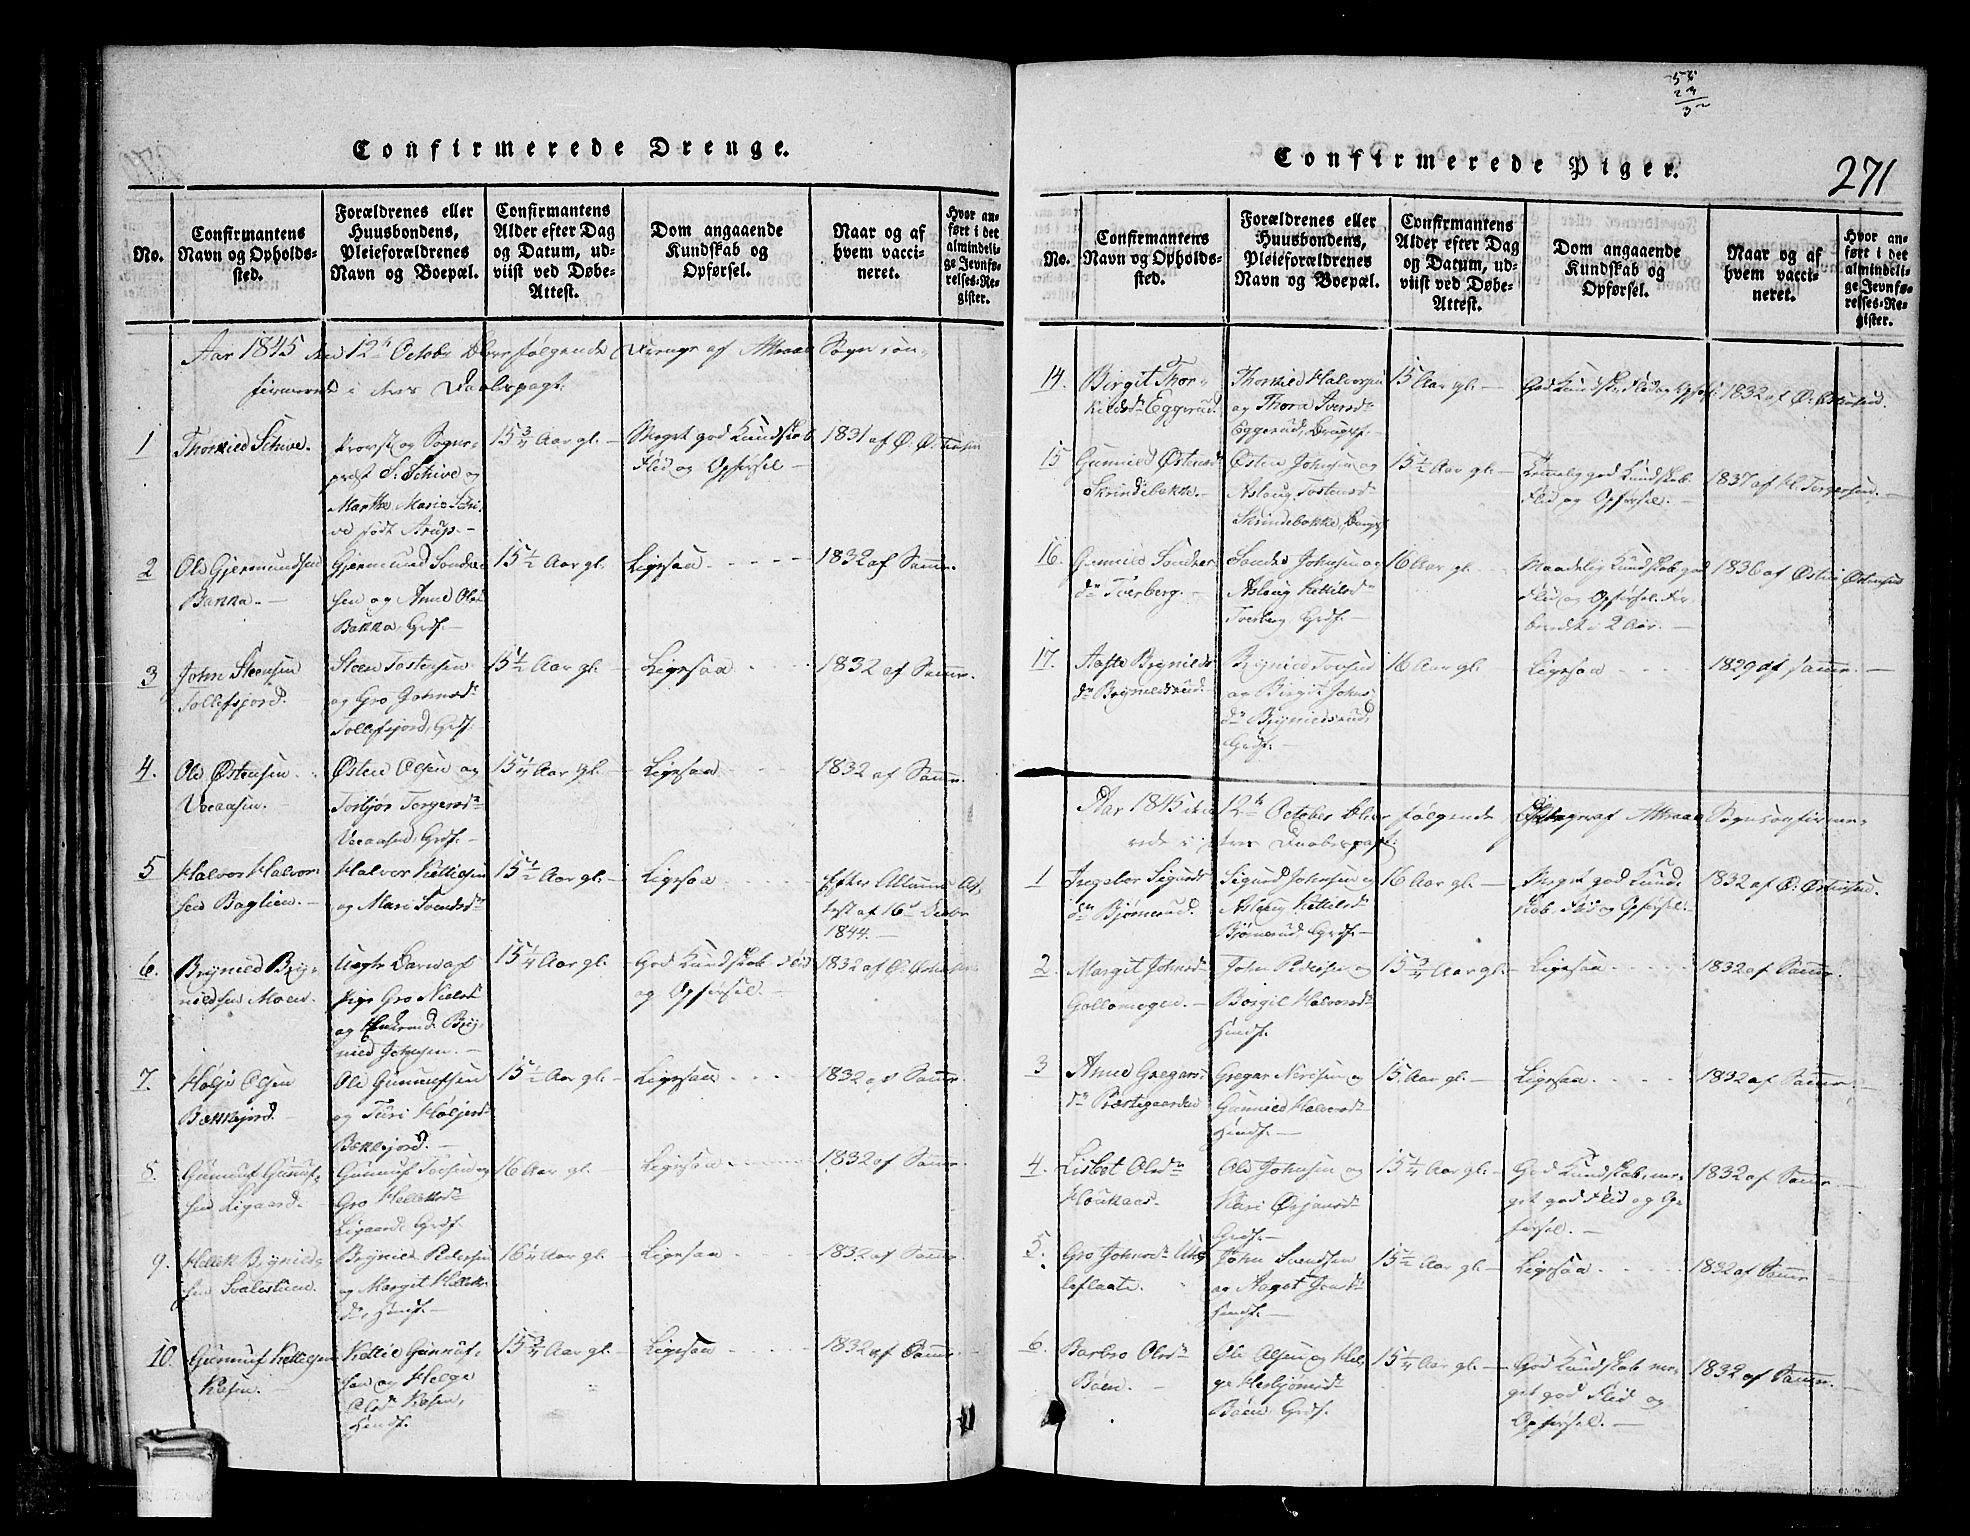 Confirmerede Drenge.
No.
Confirmantens
Navn og Opholds-
sted.
Forældrenes eller
Huusbondens,
Pleieforældrenes
Navn og Boepæl.
Confirmantens
Alder efter Dag
og Datum, ud-
viist ved Døbe-
Attest.
Dom angaaende
Kundskab og
Opførsel.
Naar og af
hvem vacci-
neret.
Hvor an-
ført i det
almindeli-
ge Jevnfø-
relses-Re-
gister.
Aar 1845 den 12te October blev følgende Drenge af Attraae Sogn con-
firmeret i deres Daabspagt.
1
Thorkild Schive.
Provst og Sogne-
præst S. Schive og
Marthe Marie Schi-
ve født Arup.-
15 3/4 Aar gl.-
Meget god Kundskab
Flid og Opførsel-
1831 af Ø. Østensen
2
Ole Gjermundsen
Bakka.-
Gjermund Sondre-
sen og Anne Olsd
Bakka, Grdf.-
15 1/2 Aar gl.
Ligesaa
1832 af Samme.
3
John Steensen
Tollefsjord.
Steen Tostensen
og Gro Johnsdr
Tollefsjord, Grdf.
15 1/2 Aar gl.-
Ligesaa
1832 af Samme.
4.
Ole Østensen
Vaaasen.-
Østen Olsen og
Torbjør Torgersdr
Vaaasen, Grdf.-
15 1/4 Aar gl.-
Ligesaa
1832 af Samme.
5
Halvor Halvor-
sen Baglien.-
Halvor Kittilsen
og Mari Svendsdr
15 1/2 Aar gl.-
Ligesaa
Efter At-
test af 16de
1844.-
6.
Brynild Bry-
nildsen Moen.
Uægte Barn af
Pige Gro Nielsd
og Brÿ-
nild Johnsen.-
15 1/4 Aar gl.
God Kundskab Flid
og Opførsel.-
1832 af Ø. Østensen
7.
Høljе Olsen
Bækkhjord.
Ole Gunnufsen
og Turi Høljesd
Bækkhjord.-
15 1/2 Aar gl.-
Ligesaa
1832 af Samme.
8.
Gunnuf Gunuf-
sen Ligaard.
Gunnuf Tovsen og
Gro Helleksdr
Ligaard, Grdf.
16 Aar gl.-
Ligesaa
1832 af Samme.
9.
Hellek Brynilds-
sen Svalestuen.
Brynild Pedersen
og Margit Hellek
dr, Huusf.-
16 1/4 Aar gl.-
Ligesaa
1832 af Samme.
10.
Gunnuf Kittilsen
Råsen.-
Kittil Gunnuf-
sen og Helge
Olsdr Råsen,
Huusf.
15 3/4 Aar gl.
Ligesaa
1832 af Samme.
Confirmerede Piger.
271
56
23
3
No.
Confirmantens
Navn og Opholds-
sted.
Forældrenes eller
Huusbondens,
Pleieforældrenes
Navn og Boepæl.
Confirmantens
Alder efter Dag
og Datum, ud-
viist ved Døbe-
Attest.
Dom angaaende
Kundskab og
Opførsel.
Naar og af
hvem vacci-
neret.
Hvor an-
ført i det
almindeli-
ge Jevnfø-
relses-Re-
gister.
14.
Birgit Thor-
kildsdr Eggerud.
Thorkild Halvorsen
og Thora Iversdr
Eggerud, Brugsf.-
15 Aar gl.-
God Kundskab, Flid og Opførsel.
1832 af Ø. Østensen.
15
Gunnild Østensd
Skrindebakke.-
Østen Johnsen og
Aslaug Tostensd
Skrindebakke, Brugsf
15 1/2 Aar gl.-
Temmelig god Kundskab
Flid og Opførsel.-
1837 af H. Torgersen.-
16.
Gunnild Sondres-
dr Tverberg.-
Sondre Johnsen og
Aslaug Kittilsdr
Tverberg, Grdf.-
16 Aar gl.
Maadelig Kundskab god
Flid og Opførsel. For-
beredt i 2 Aar.-
1836 af Østen Østensen
17.
Aaste Brynilds
dr Brynildsrud.-
Brynild Tovsen
og Birgit Johns
dr Brynildsrud,
Grdf.-
16 Aar gl.-
Ligesaa
1829 af Samme.-
Aar 1845 den 12te October blev følgende Piger af Attraae Sogn confirme-
rede i deres Daabspagt.
1
Ingebor Sigurds
dr Bjørnerud.
Sigurd Johnsen og
Aslaug Kittilsd
Bjørnerud, Grdf.-
16 Aar gl.-
Meget god Kund-
skab, Flid og Opførsel.-
1832 af Ø. Østensen.
2.
Margit Johnsd
Gollomogen.-
John Pedersen og
Borgil Halvorsdr
Huusf.
15 3/4 Aar gl.-
Ligesaa
1832 af Samme.
3
Anne Gregars-
dr Præstegaarden
Gregar Nirisen og
Gunnild Halvorsd
Huusf.-
15. Aar gl.-
Ligesaa
1832 af Samme.-
4.
Lisbet Olsdr
Houkaas.
Ole Johnsen og
Kari Ørjansd
Grdf.-
15 1/4 Aar gl.-
God Kundskab, me-
get god Flid og Op-
førsel.-
1832 af Samme.-
5.
Gro Johnsdr
leflaate.
John Svendsen
og Aaget Jensd
Huusf.-
15 1/2 Aar gl.-
Ligesaa
1832 af Samme-
6.
Barbro Olsdr
Bøen.-
Ole Olsen og Hel-
ge Herbjørnsd
Bøen, Grdf.
15 1/4 Aar gl.-
God Kundskab me-
get god Flid og
Opførsel.-
1832 af Samme.-